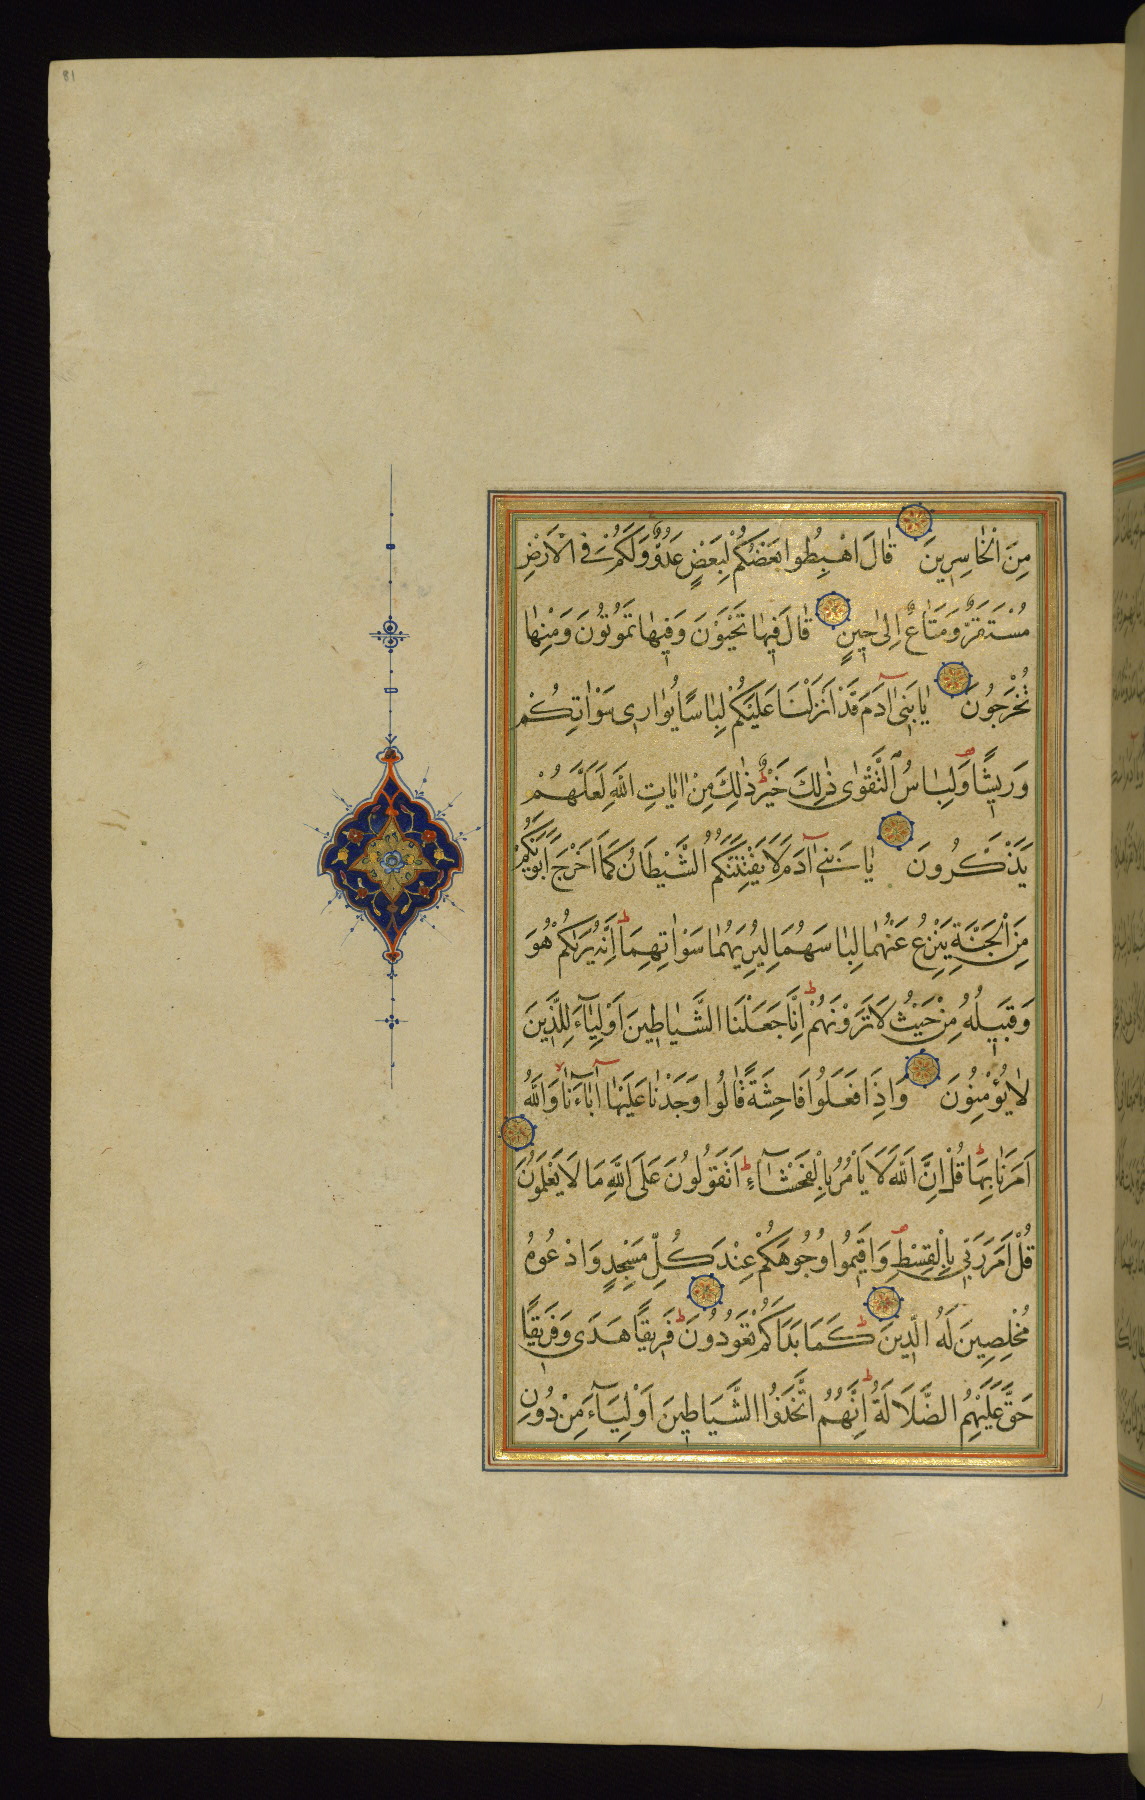 81
مِنَ الْخَاسِرِينَ قَالَ اهْبِطُوا بَعْضُكُمْ لِبَعْضٍ عَدُوٌّ وَلَكُمْ فِي الْاَرْضِ
مُسْتَقَرٌّ وَمَتَاعٌ اِلٰى حِينٍ قَالَ فِيهَا تَحْيَوْنَ وَفِيهَا تَمُوتُونَ وَمِنْهَا
تُخْرَجُونَ يَا بَنِي آدَمَ قَدْ اَنْزَلْنَا عَلَيْكُمْ لِبَاسًا يُوَارِي سَوْاٰتِكُمْ
وَرِيشًا وَلِبَاسُ التَّقْوٰى ذٰلِكَ خَيْرٌ ذٰلِكَ مِنْ اٰيَاتِ اللّٰهِ لَعَلَّهُمْ
يَذَّكَّرُونَ يَا بَنِي آدَمَ لَا يَفْتِنَنَّكُمُ الشَّيْطَانُ كَمَا اَخْرَجَ اَبَوَيْكُمْ
مِنَ الْجَنَّةِ يَنْزِعُ عَنْهُمَا لِبَاسَهُمَا لِيُرِيَهُمَا سَوْاٰتِهِمَا اِنَّهُ يَرٰيكُمْ هُوَ
وَقَبِيلُهُ مِنْ حَيْثُ لَا تَرَوْنَهُمْ اِنَّا جَعَلْنَا الشَّيَاطِينَ اَوْلِيَآءَ لِلَّذِينَ
لَا يُؤْمِنُونَ وَاِذَا فَعَلُوا فَاحِشَةً قَالُوا وَجَدْنَا عَلَيْهَا آبَآءَنَا وَاللّٰهُ
اَمَرَنَا بِهَا قُلْ اِنَّ اللّٰهَ لَا يَاْمُرُ بِالْفَحْشَآءِ اَتَقُولُونَ عَلَى اللّٰهِ مَا لَا يَعْلَمُونَ
قُلْ اَمَرَ رَبِّي بِالْقِسْطِ وَاَقِيمُوا وُجُوهَكُمْ عِنْدَ كُلِّ مَسْجِدٍ وَادْعُوهُ
مُخْلِصِينَ لَهُ الدِّينَ كَمَا بَدَاَكُمْ تَعُودُونَ فَرِيقًا هَدٰى وَفَرِيقًا
حَقَّ عَلَيْهِمُ الضَّلَالَةُ اِنَّهُمُ اتَّخَذُوا الشَّيَاطِينَ اَوْلِيَآءَ مِنْ دُونِ